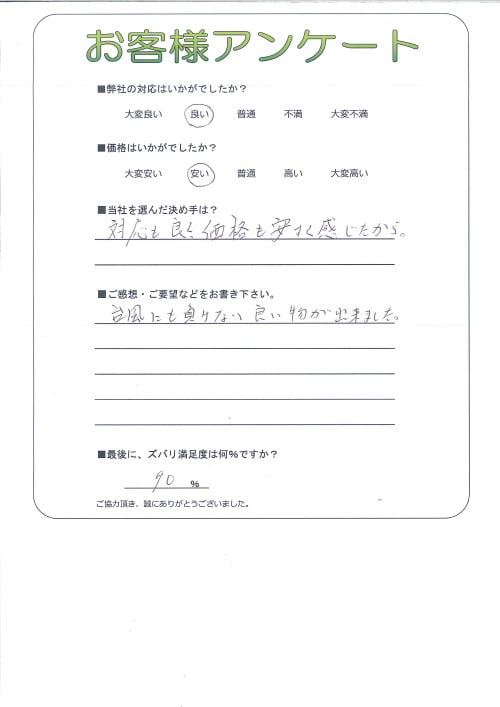 お客様アンケート
■弊社の対応はいかがでしたか？
大変良い 良い 普通 不満 大変不満
■価格はいかがでしたか？
大変安い 安い 普通 高い 大変高い
■当社を選んだ決め手は？
対応も良く、価格も安すく感じたから。
■ご感想・ご要望などをお書き下さい。
台風にも負けない良い物が出来ました。
■最後に、ズバリ満足度は何％ですか？
90 ％
ご協力頂き、誠にありがとうございました。